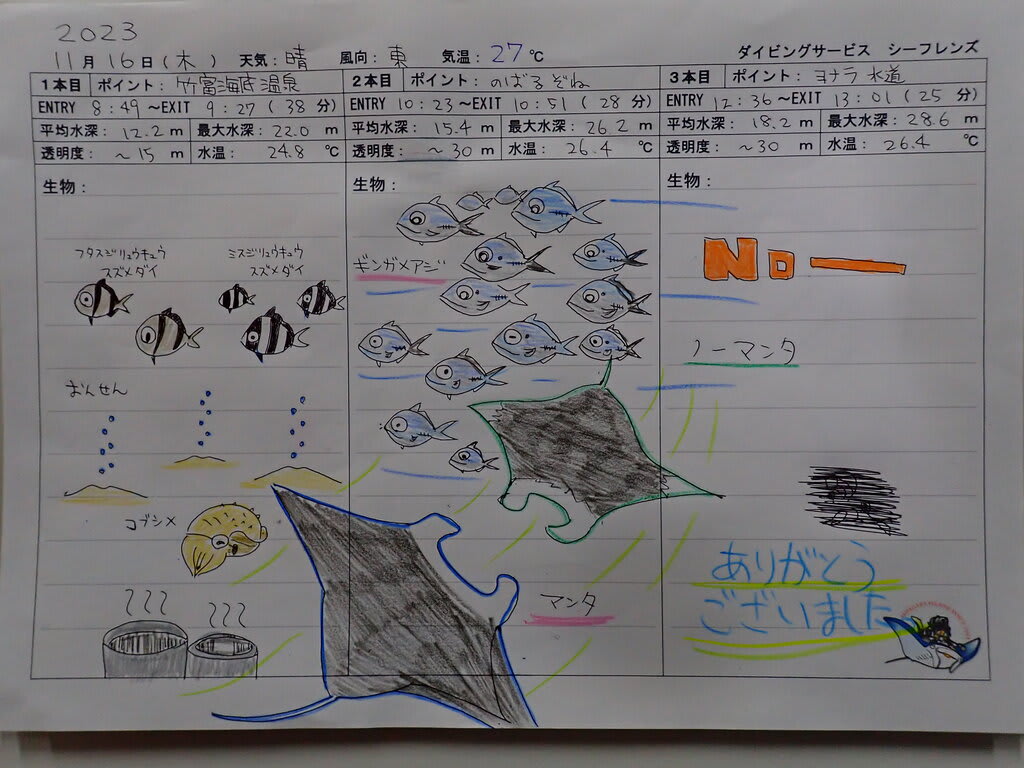 2023
11月16日(木) 天気:晴 風向:東 気温:27℃ ダイビングサービス シーフレンズ
1本目 ポイント:竹富海底温泉
ENTRY 8:49~EXIT 9:27(38分)
平均水深:12.2m 最大水深:22.0m
透明度:~15m 水温:24.8℃
生物:
フタスジリュウキュウ
スズメダイ
ミスジリュウキュウ
スズメダイ
おんせん
コブシメ
2本目 ポイント:のばるぞね
ENTRY 10:23~EXIT 10:51(28分)
平均水深:15.4m 最大水深:26.2m
透明度:~30m 水温:26.4℃
生物:
ギンガメアジ
マンタ
3本目 ポイント:ヨナラ水道
ENTRY 12:36~EXIT 13:01(25分)
平均水深:18.2m 最大水深:28.6m
透明度:~30m 水温:26.4℃
生物:
No―
ノーマンタ
ありがとう
ございました